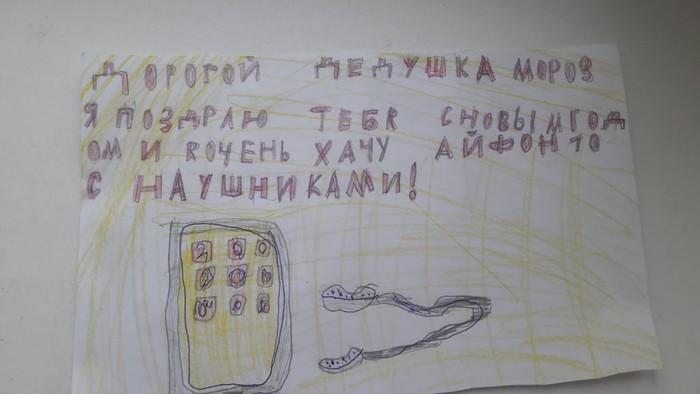 ДОРОГОЙ ДЕДУШКА МОРОЗ
Я ПОЗДРАЮ ТЕБЯ СНОВЫМГОД
ОМ И ЯОЧЕНЬ ХАЧУ АЙФОН 10
С НАУШНИКАМИ!